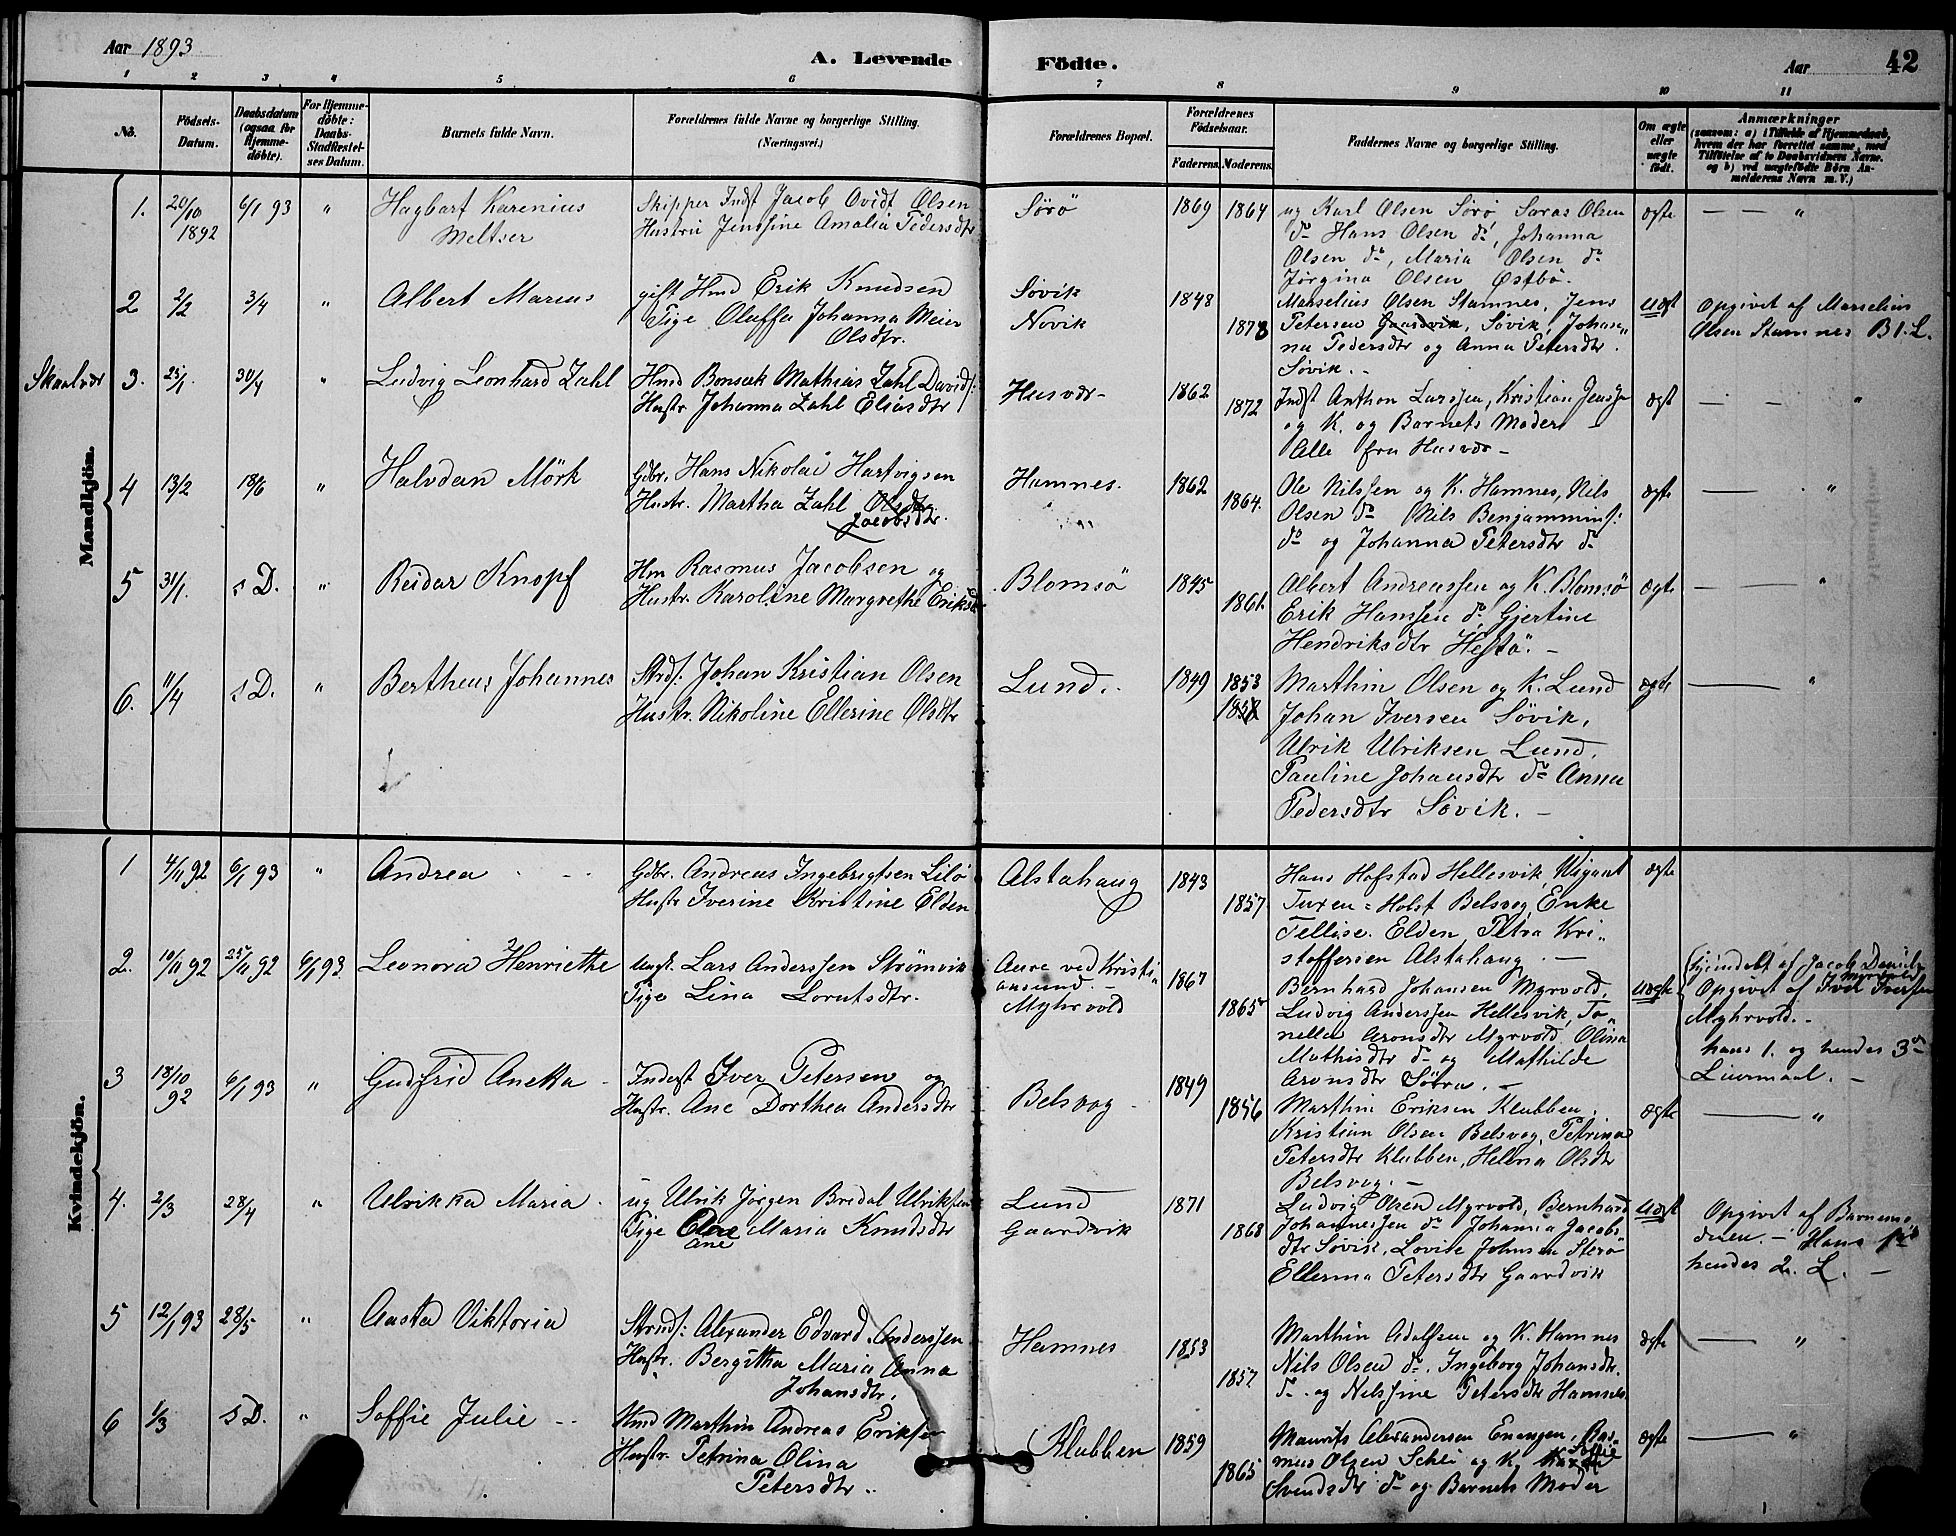 Aar 1893
A. Levende Födte.
Aar
42
1 2 3 4 5 6 7 8 9 10 11
No.
Födsels-Datum.
Daabsdatum (ogsaa for Hjemmedöbte).
For Hjemmedöbte: Daabs-Stadfæstelses Datum.
Barnets fulde Navn.
Forældrenes fulde Navne og borgerlige Stilling.
(Næringsvei.)
Forældrenes Bopæl.
Forældrenes Födselsaar.
Faderens. Moderens.
Faddernes Navne og borgerlige Stilling.
Om ægte eller uægte födt.
Anmærkninger
(saasom: a) i Tilfælde af Hjemmedaab, hvem der har forrettet samme, med Tilföielse af to Daabsvidners Navne, og b) ved uægtefödte Börn Anmelderens Navn m. V.)
Mandkjön.
1. 20/10 1892 6/1 93 "
Hagbart Karenius
Meltser
Skipper Indst Jacob Ovidt Olsen
Hustru Jentsine Amalia Pedersdtr
Sörö
1869 1864
ug Karl Olsen Sörö, Saras Olsen
do Hans Olsen do, Johanna
Olsen do, Maria Olsen do
Jørgina Olsen Østbö.
ægte
— — "
2 2/2 3/4 "
Albert Marius
gift Hmd Erik Knudsen
Pige Oluffa Johanna Meier
Olsdtr.
Søvik
Novik
1848
1878
Marselius Olsen Stamnes, Jens
Petersen Gaardvik, Søvik, Johan-
na Pedersdtr og Anna Petersdtr.
Søvik.
Uægt
Opgivet af Marselius
Olsen Stamnes B 1. L.
Skaalvær 3. 25/1. 30/4 "
Ludvig Leonhard Zahl
Hmd Bonsak Mathias Zahl Davids:
Hustr. Johanna Zahl Eliasdtr
Husvær
1862
1872
Indst Anthon Larssen, Kristian Jenssen
og K. og Barnets Moder
Alle fra Husvær
ægt
— — "
4 13/2 18/6 "
Halvdan Mörk
Gdbr. Hans Nikolai Hartvigsen
Hustr. Martha Zahl Olsdtr
Jacobsdtr.
Hamnes.
1862
1864.
Ole Nilssen og K. Hamnes, Nils
Olsen do Nils Benjamins:
do og Johanna Petersdtr do
ægte
— "
5 31/1. s D. "
Reidar Knopf
Hm Rasmus Jacobsen og
Hustr. Karoline Margrethe Eriksd
Blomsö
1845
1861.
Albert Andreassen og K. Blomsö
Erik Hanssen do, Gjertine
Hendriksdtr Hestö. —
ægte
— "
6. 11/4 s D. "
Bertheus Johannes
Strds: Johan Kristian Olsen
Hustr. Nikoline Ellerine Olsdtr
Lund.
1849 1853
Marthin Olsen og K. Lund
Johan Iversen Søvik,
Ulrik Ulriksen Lund,
Pauline Johansdtr do Anna
Pedersdtr Søvik. —
ægte
— "
Kvindekjön.
1 4/11 92 6/1 93 "
Andrea
Gdbr. Andreas Ingebrigtsen Lilö
Hustr Iverine Kristine Elden
Alstahaug
1843
1857.
Hans Hofstad Hellesvik, Wigant
Tuxen = Holst Belsvog, Enke
Tellise. Elden Petra Kri-
stoffersen Alstahaug. —
ægte
2. 19/11 92 25/11 92 6/1 93
Leonora Henriette
Ungk. Lars Anderssen Strømvik
Pige Lina Lorntsdtr.
Aure ved Kristi-
ansund. —
Myhrvold
1867
1865
Bernhard Johansen Myrvold,
Ludvig Anderssen Hellesvik, To-
nella Aronsdtr Myrvold. Olina
Mathisdtr do og Mathilde
Aronsdtr Søtra. —
Uægte
Hjemdöbt af Jacob Daniels
Myrvold
Opgivet af Iver Iversen
Myhrvold.
hans 1. og hendes 3die
Leiermaal. —
3 18/10 92 6/1 93 "
Gudfrid Anetta
Inderst Iver Petersen og
Hustr. Ane Dorthea Andersdtr
Belsvog
1849
1856
Marthin Eriksen Klubben.
Kristian Olsen Belsvog, Petrina
Petersdtr Klubben, Helena Olsdtr
Belsvog. —
ægte
— "
4. 2/3 28/4 "
Ulrikka Maria
ug Ulrik Jørgen Bredal Ulriksen
Pige Ane Maria Knudsdtr
Ane
Lund
Gaardvik
1871
1868
Ludvig Olsen Myrvold, Bernhard
Johannessen do Johanna Jacobs-
dtr Søvik, Lovise Johnsen Sterö
Ellerina Petersdtr Gaardvik
Uægt
Opgivet af Barnemo-
deren. — Hans 1ste
hendes 2. L. —
5 12/1 93 28/5 "
Aasta Viktoria
Strnds: Alexander Edvard Anderssen
Hustr. Bergitha Maria Anna
Johansdtr.
Hamnes
1853
1857
Marthin Adolfsen og K. Hamnes
Nils Olsen do. Ingeborg Johansdtr.
do. og Nilsine Petersdtr Hamnes
ægte
— "
6 1/3 s D. "
Soffie Julie
Hmd Marthin Andreas Eriksen
Hustr. Petrina Olina
Petersdtr.
Klubben
1859
1865
Maurits Alexandersen Enangen, Ras-
mus Olsen Schei og K. Soffie
Svendsdtr do og Barnets Moder
ægte
— "